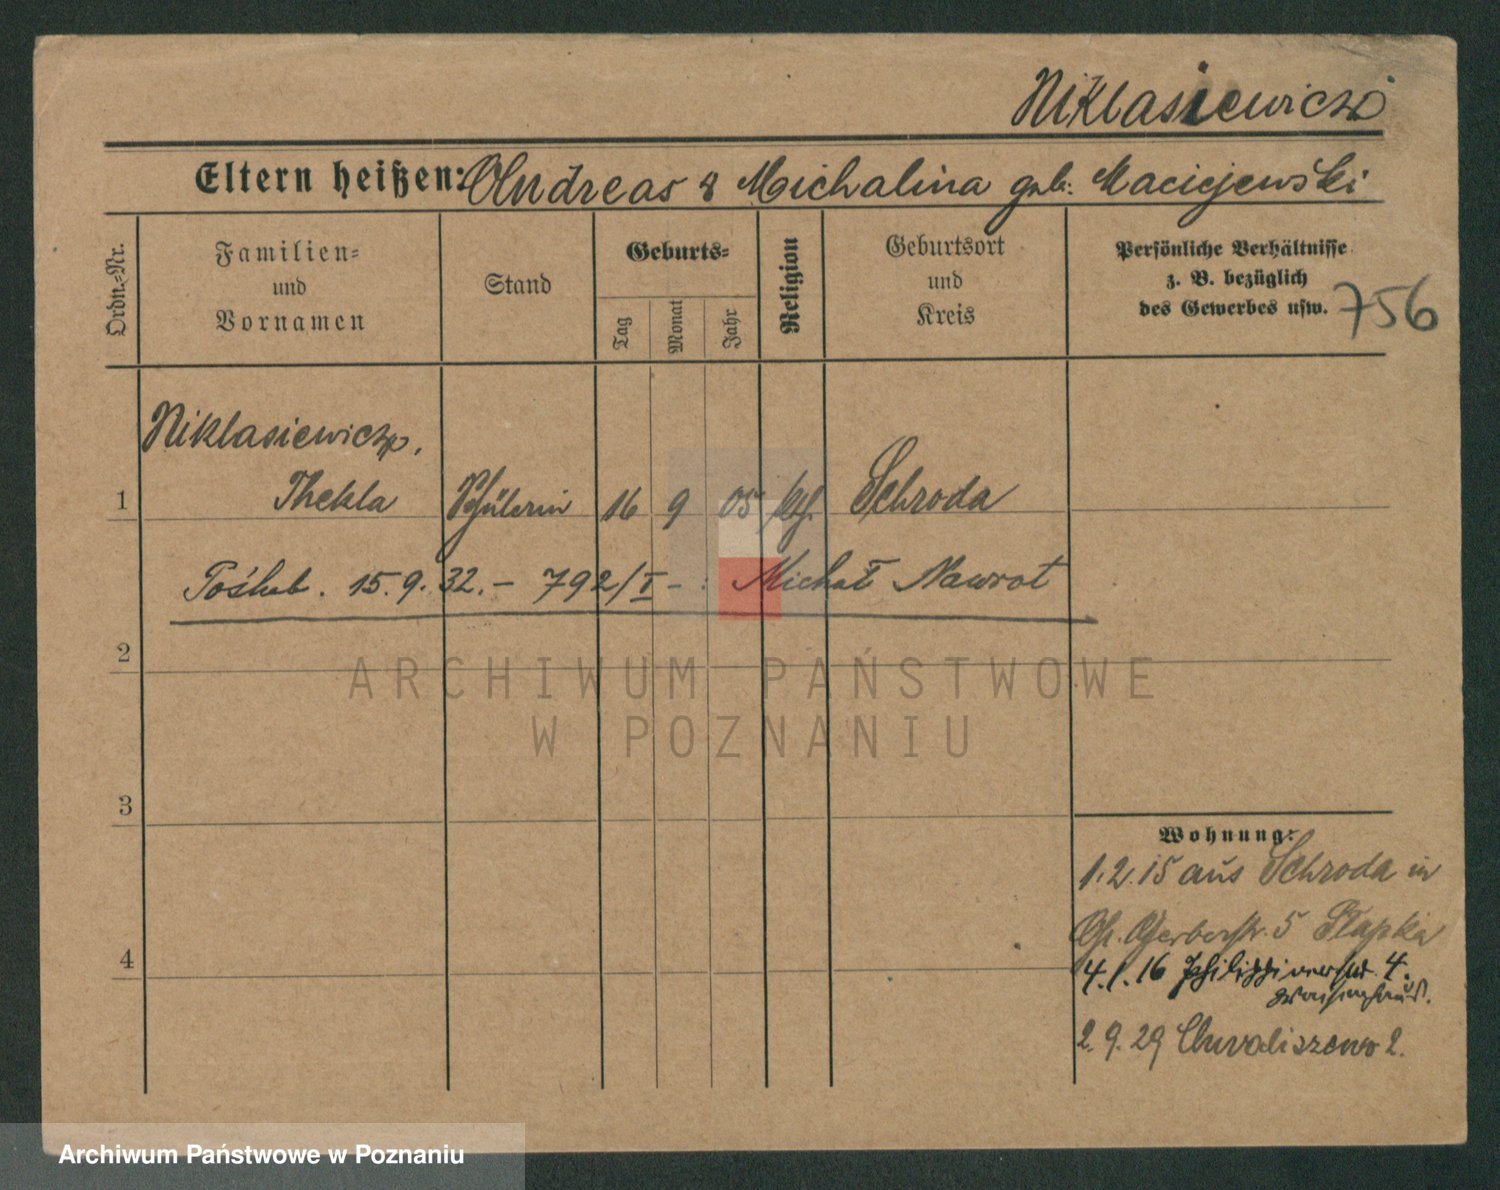 Niklasiewicz
Eltern heißen: Andreas & Michalina geb. Maciejewski
Ordn.-Nr.
Familien-
und
Vornamen
Stand
Geburts-
Tag
Monat
Jahr
Religion
Geburtsort
und
Kreis
Persönliche Verhältnisse
z. B. bezüglich
des Gewerbes usw.
756
Niklasiewicz,
1 Thekla Schülerin 16 9 05 kth. Schroda
Poślub. 15.9.32.- 792/I - : Michał Nawrot
2
ARCHIWUM PAŃSTWOWE
W POZNANIU
3
Wohnung:
1.2.15 aus Schroda in
Gr. Gerberstr. 5 Słapka
4
4.1.16 4.
Waisenhaus.
2.9.29 Chwaliszewo 2.
Archiwum Państwowe w Poznaniu